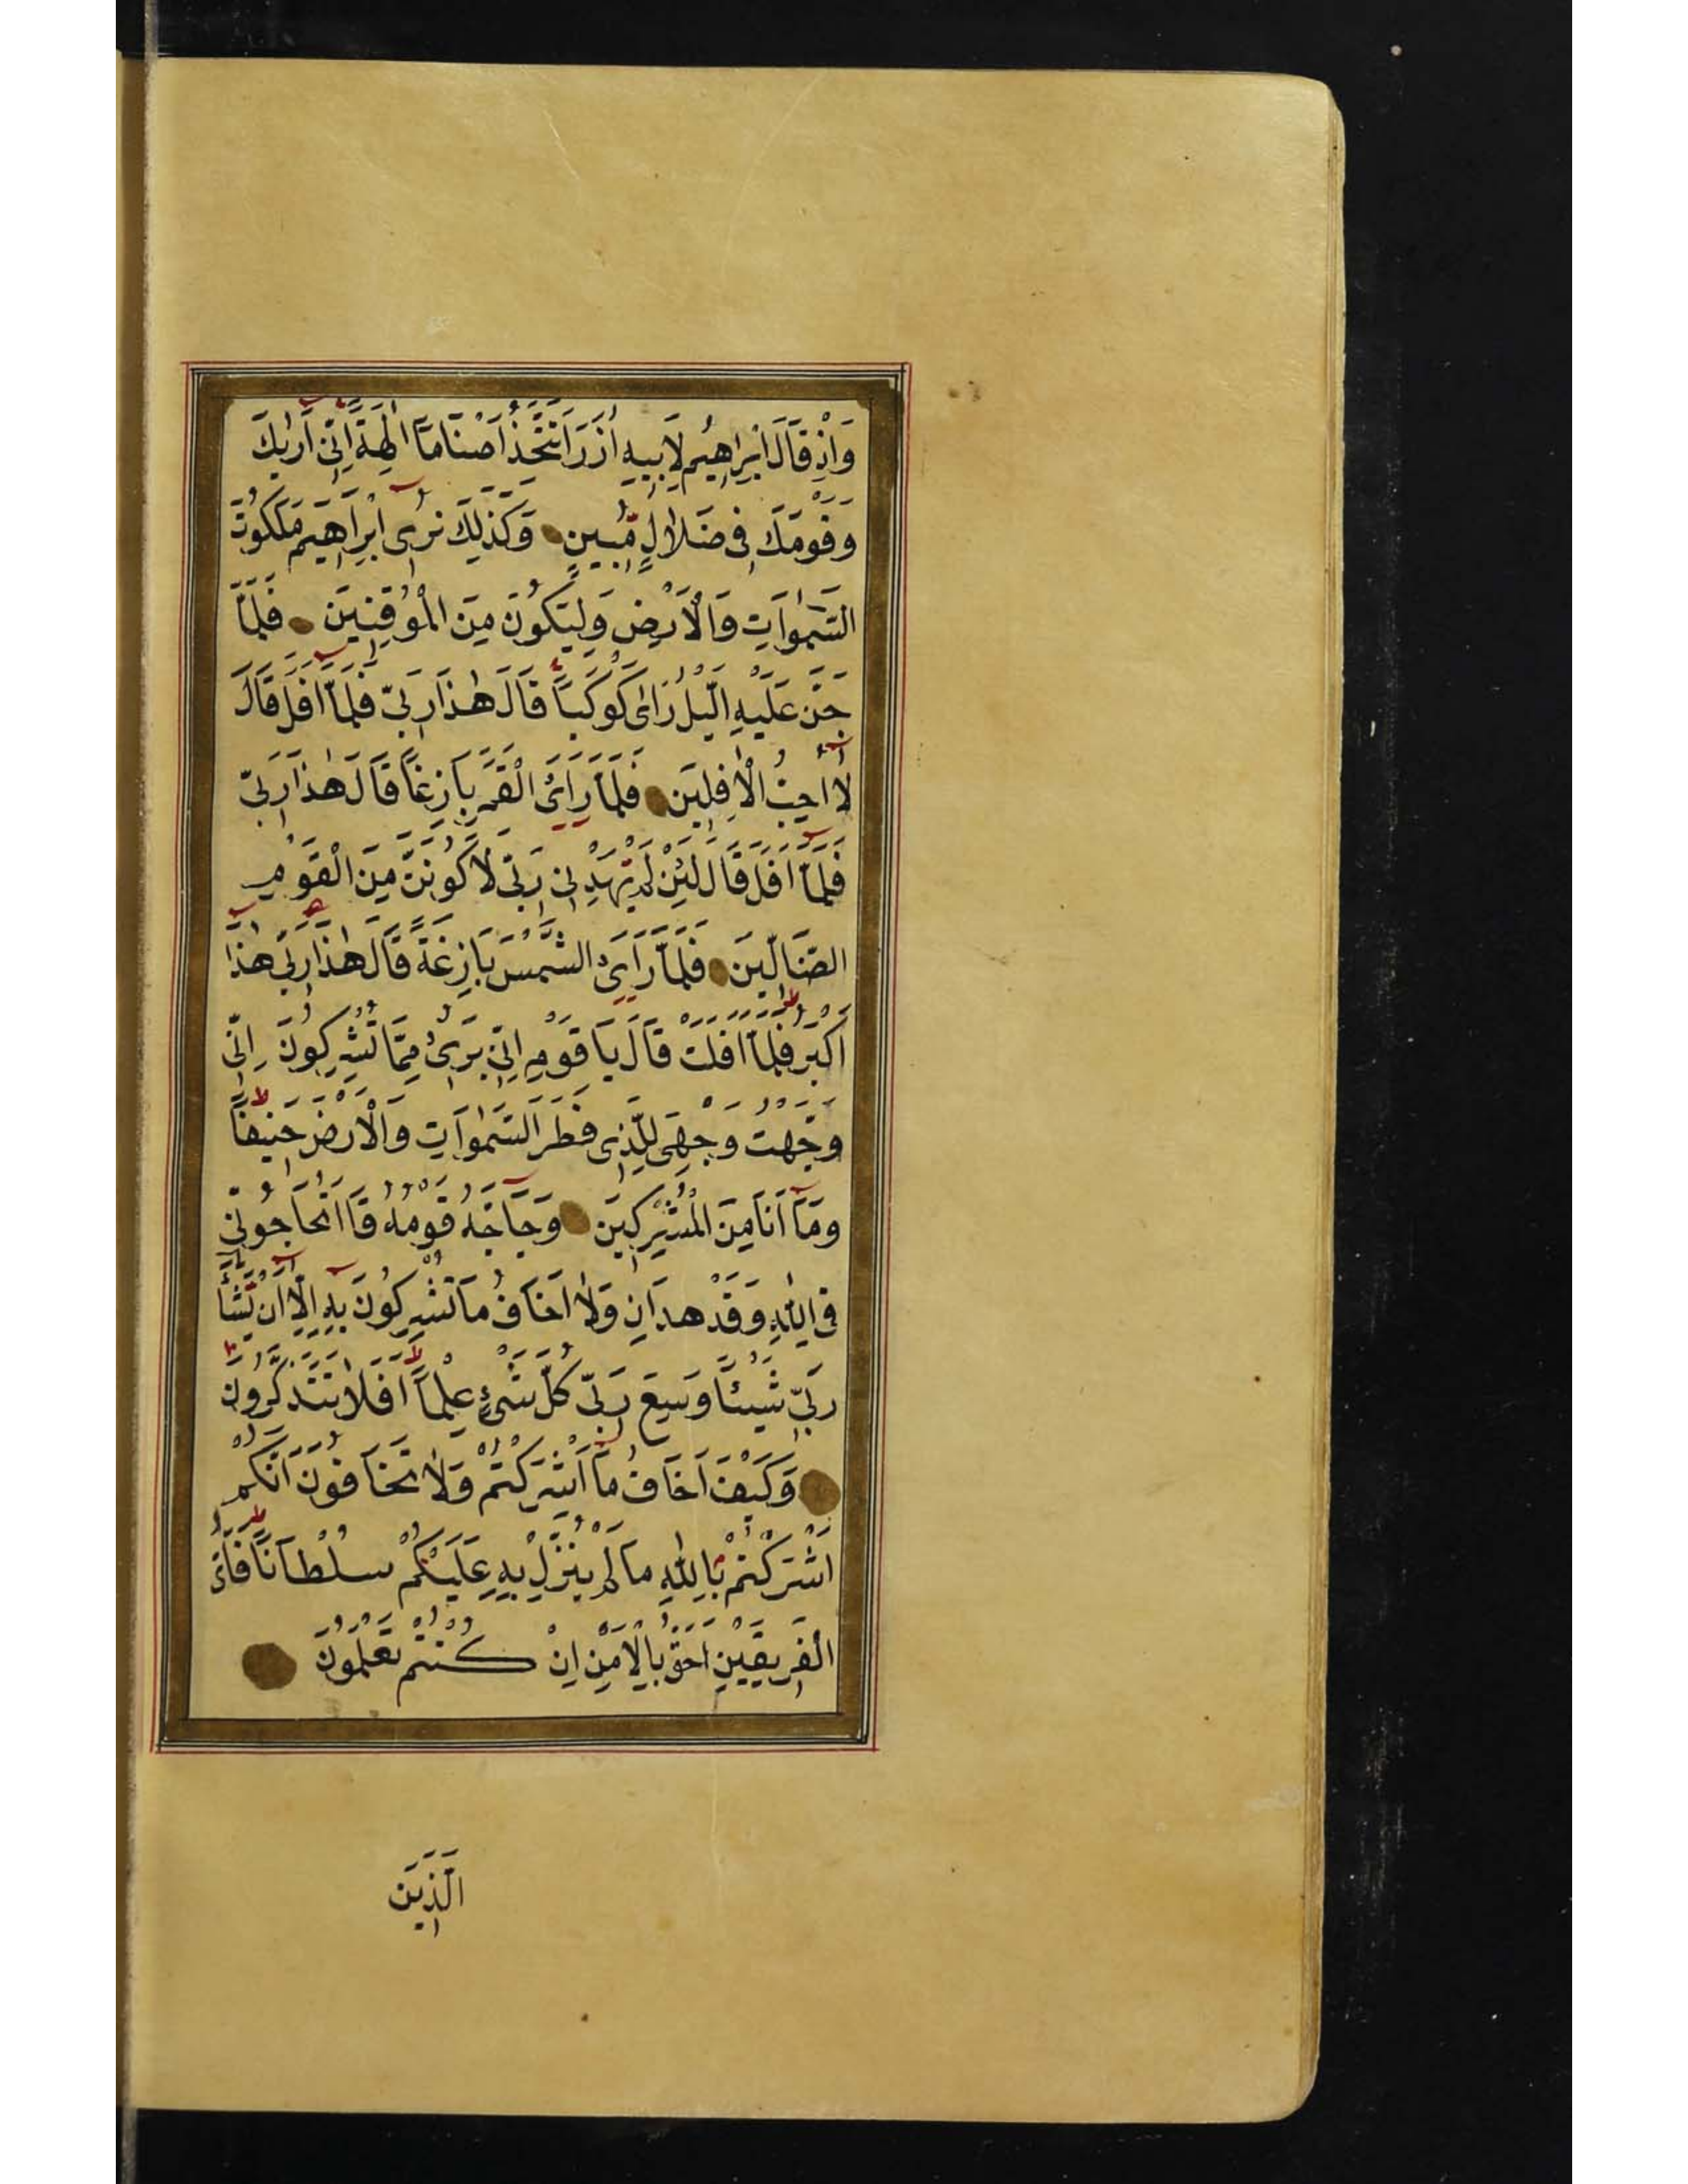 وَاِذْ قَالَ اِبْرٰاهِيمُ لِاَبِيهِ اٰزَرَ اَتَتَّخِذُ اَصْنَامًا اٰلِهَةً اِنِّي اَرٰيكَ
وَقَوْمَكَ فِي ضَلَالٍ مُبِينٍ وَكَذٰلِكَ نُرِي اِبْرَاهِيمَ مَلَكُوتَ
السَّمٰوَاتِ وَالْاَرْضِ وَلِيَكُونَ مِنَ الْمُوقِنِينَ فَلَمَّا
جَنَّ عَلَيْهِ الَّيْلُ رَاٰى كَوْكَبًا قَالَ هٰذَا رَبِّي فَلَمَّا اَفَلَ قَالَ
لَا اُحِبُّ الْاٰفِلِينَ فَلَمَّا رَاَىَ الْقَمَرَ بَازِغًا قَالَ هٰذَا رَبِّي
فَلَمَّا اَفَلَ قَالَ لَئِنْ لَمْ يَهْدِنِي رَبِّي لَاَكُونَنَّ مِنَ الْقَوْمِ
الضَّالِّينَ فَلَمَّا رَاَىَ الشَّمْسَ بَازِغَةً قَالَ هٰذَا رَبِّي هٰذَا
اَكْبَرُ فَلَمَّا اَفَلَتْ قَالَ يَا قَوْمِ اِنِّي بَرِيءٌ مِمَّا تُشْرِكُونَ اِنِّي
وَجَّهْتُ وَجْهِيَ لِلَّذِي فَطَرَ السَّمٰوَاتِ وَالْاَرْضَ حَنِيفًا
وَمَا اَنَا مِنَ الْمُشْرِكِينَ وَحَاجَّهُ قَوْمُهُ قَالَ اَتُحَاجُّونِّي
فِي اللّٰهِ وَقَدْ هَدَانِ وَلَا اَخَافُ مَا تُشْرِكُونَ بِهِ اِلَّا اَنْ يَشَاءَ
رَبِّي شَيْئًا وَسِعَ رَبِّي كُلَّ شَيْءٍ عِلْمًا اَفَلَا تَتَذَكَّرُونَ
وَكَيْفَ اَخَافُ مَا اَشْرَكْتُمْ وَلَا تَخَافُونَ اَنَّكُمْ
اَشْرَكْتُمْ بِاللّٰهِ مَا لَمْ يُنَزِّلْ بِهِ عَلَيْكُمْ سُلْطَانًا فَاَيُّ
الْفَرِيقَيْنِ اَحَقُّ بِالْاَمْنِ اِنْ كُنْتُمْ تَعْلَمُونَ
الَّذِينَ